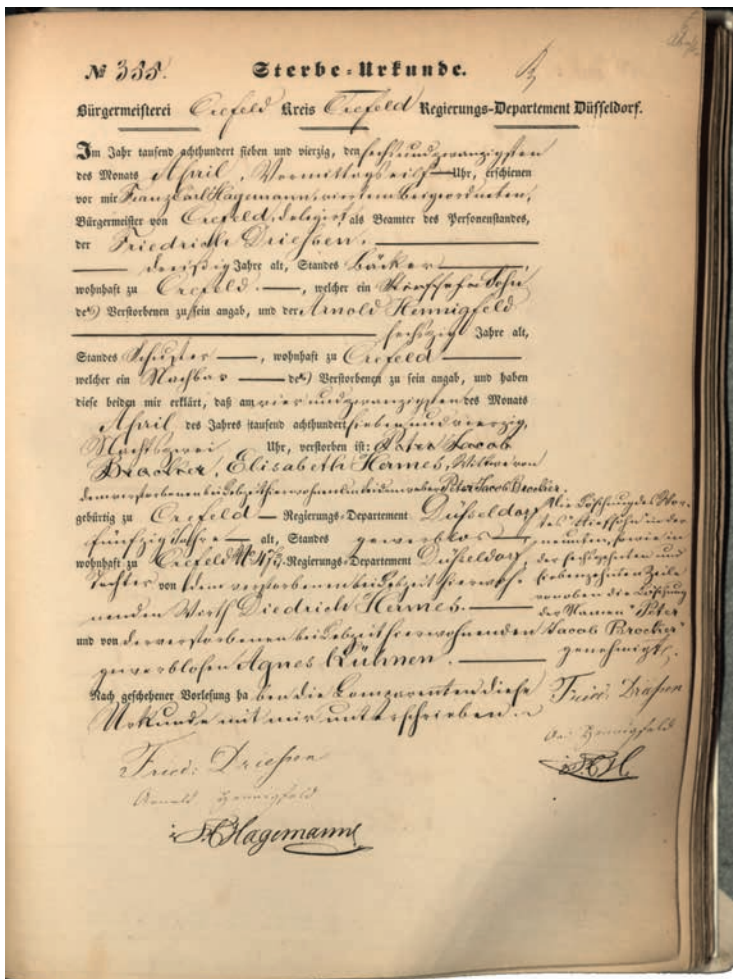 № 355. Sterbe-Urkunde.
Bürgermeisterei Crefeld Kreis Crefeld Regierungs-Departement Düsseldorf.
Im Jahr tausend achthundert sieben und vierzig, den sechsundzwanzigsten
des Monats April, Vormittags eilf Uhr, erschienen
vor mir Franz Carl Hagemann, viertem Beigeordneten,
Bürgermeister von Crefeld, delegirt, als Beamter des Personenstandes,
der Friedrich Drießen,
dreißig Jahre alt, Standes Bäcker,
wohnhaft zu Crefeld, welcher ein Stiefsohn Sohn
de Verstorbenen zu sein angab, und der Arnold Hennigfeld
sechszig Jahre alt,
Standes Schuster, wohnhaft zu Crefeld
welcher ein Nachbar de Verstorbenen zu sein angab, und haben
diese beiden mir erklärt, daß am vier und zwanzigsten des Monats
April des Jahres tausend achthundert sieben und vierzig,
Nachts zwei Uhr, verstorben ist: Peter Jacob
Brocker, Elisabeth Hermes, Wittwe von
dem verstorbenen bei Lebzeit hier wohnenden Peter Jacob Brocker.
gebürtig zu Crefeld Regierungs-Departement Düsseldorf
fünfzig Jahre alt, Standes gewerblos
wohnhaft zu Crefeld Regierungs-Departement Düsseldorf,
Tochter von dem verstorbenen bei Lebzeit hier woh
nenden Wirth Diedrich Hermes.
und von der verstorbenen bei Lebzeit hier wohnenden
gewerblosen Agnes Kühnen.
Nach geschehener Vorlesung haben die Comparenten diese
Urkunde mit mir unterschrieben.
Die Löschung des Wor-
tes "Stiefsohn" in der
neunten, sowie in
der sechszehnten und
siebenzehnten Zeile
von oben die Löschung
der Namen "Peter
Jacob Brocker"
genehmigt.
Fried: Drießen
Arn: Hennigfeld
Fried: Drießen
Arnold Hennigfeld
Hagemann